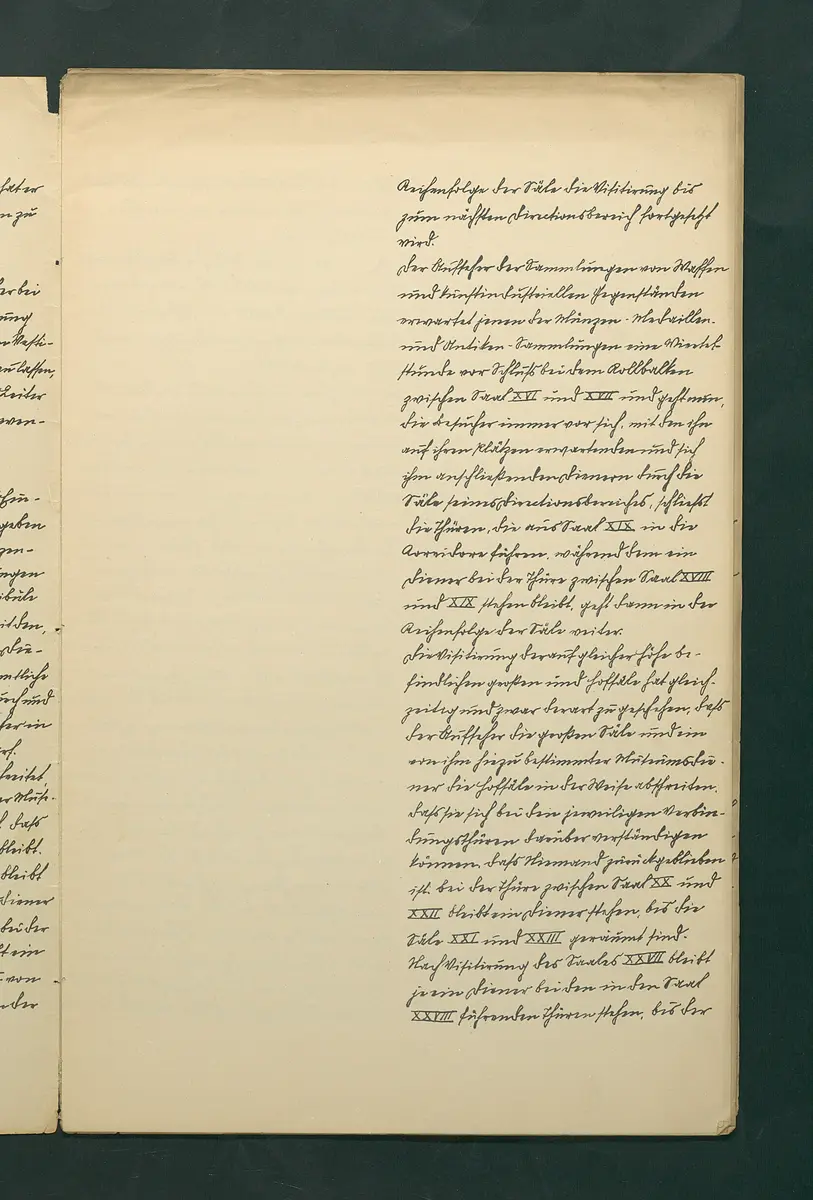 hat er
n zu
er bei
ung
Vesti-
zu lassen,
Leiter
wen-
geben
zen-
ungen
ibüle
it den,
Die-
mtliche
uch und
her in
rf.
hreitet,
er Muse-
daſs
bleibt.
bleibt
Diener
bei der
t ein
von
der
Reihenfolge der Säle die Visitirung bis
zum nächsten Directionsbereich fortgesetzt
wird.
Der Aufseher der Sammlungen von Waffen
und kunstindustriellen Gegenständen
erwartet jenen der Münzen- Medaillen-
und Antiken-Sammlungen eine Viertel-
stunde vor Schluſs bei dem Rollbalken
zwischen Saal XVI und XVII und geht nun,
die Besucher immer vor sich, mit den ihn
auf ihren Plätzen erwartenden und sich
ihm anschließenden Dienern durch die
Säle seines Directionsbereiches, schließt
die Thüren, die aus Saal XIX in die
Corridore führen, während dem ein
Diener bei der Thüre zwischen Saal XVIII
und XIX stehen bleibt, geht dann in der
Reihenfolge der Säle weiter.
Die Visitirung der auf gleicher Höhe be-
findlichen großen und Hofsäle hat gleich-
zeitig und zwar derart zu geschehen, daſs
der Aufseher die großen Säle und ein
von ihm hiezu bestimmter Museumsdie-
ner die Hofsäle in der Weise abschreiten,
daſs sie sich bei den jeweiligen Verbin-
dungsthüren darüber verständigen
können, daſs Niemand zurückgeblieben
ist. bei der Thüre zwischen Saal XX und
XXII bleibt ein Diener stehen, bis die
Säle XXI und XXIII geräumt sind.
Nach Visitirung des Saales XXVII bleibt
je ein Diener bei den in den Saal
XXVIII führenden Thüren stehen, bis der